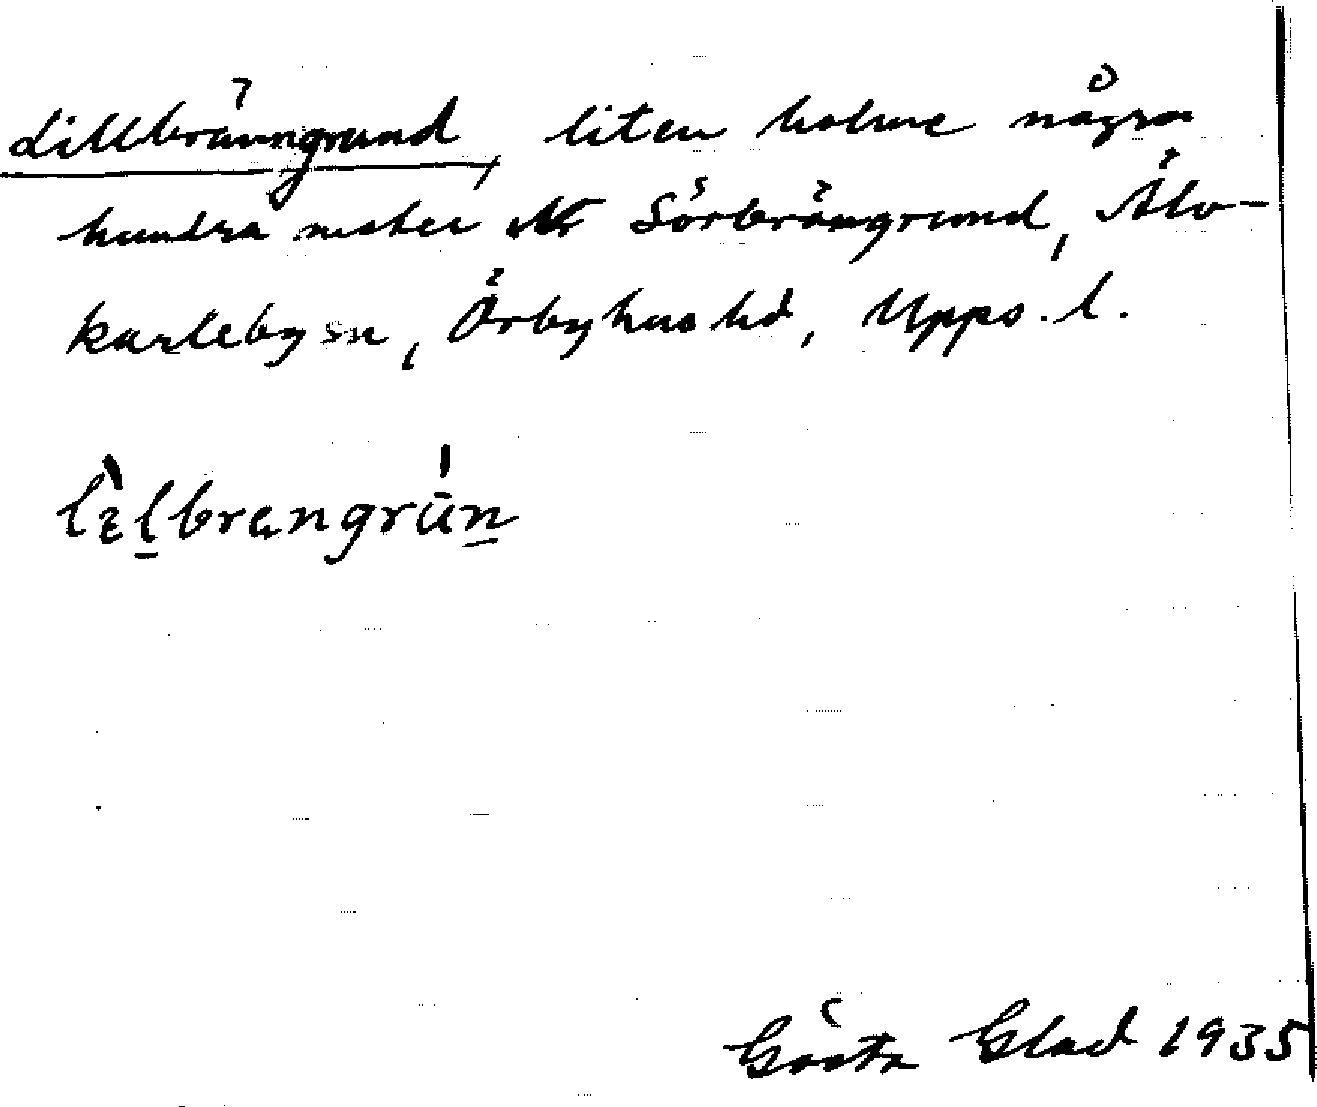 Lillbränngrund, liten holme några
hundra meter N Sörbrängrund, Älv-
karleby sn, Örbyhus hd, Upps. l.
Gösta Glad 1935